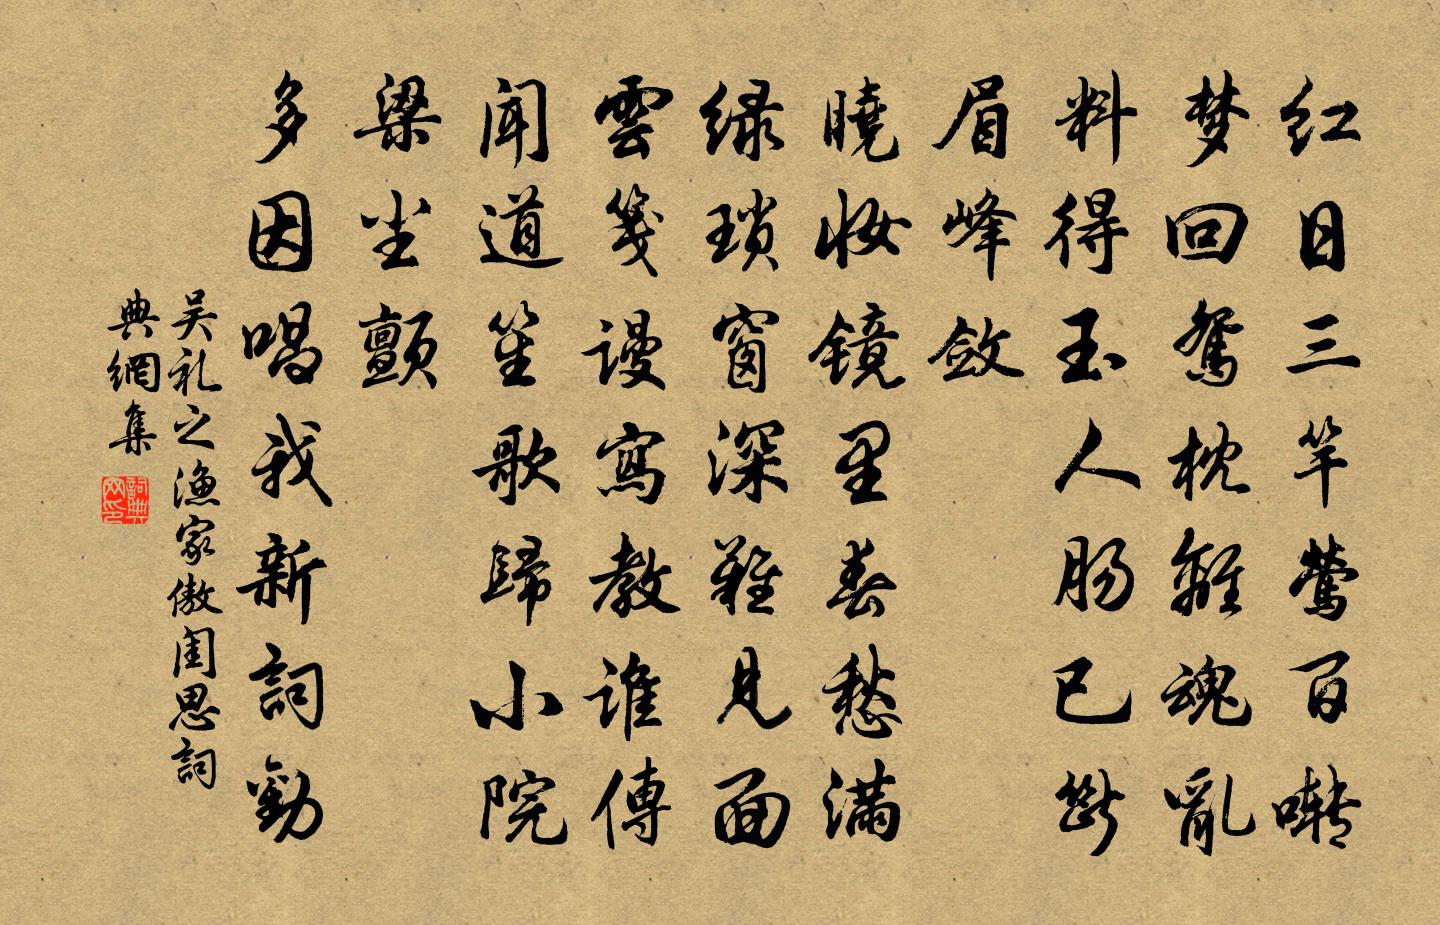 红日三竿莺百啭
梦回鸳枕離魂亂
料得玉人肠已斷
眉峰斂
曉妝镜里春愁滿
绿琐窗深難見面
雲箋謾寫教誰傳
聞道笙歌歸小院
梁尘颤
多因唱我新詞勸
吴礼之渔家傲闺思詞
典網集
詞典网印